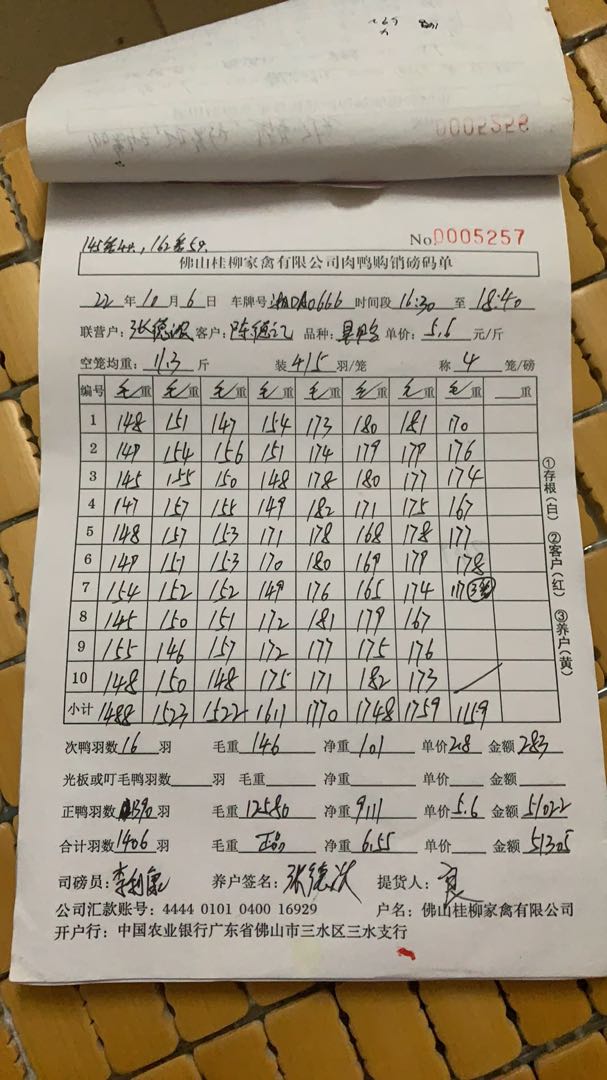 0005256
145 4只, 162 5只.
No 0005257
佛山桂柳家禽有限公司肉鸭购销磅码单
22 年 10 月 6 日 车牌号 0666 时间段 16:30 至 18:40
联营户: 张德 客户: 陈德记 品种: 单价: 5.6 元/斤
空笼均重: 11.3 斤 装 4/5 羽/笼 称 4 笼/磅
编号 毛重 毛重 毛重 毛重 毛重 毛重 毛重 毛重 重
1 148 151 147 154 173 180 181 170
2 149 154 156 151 174 179 179 176
3 145 155 150 148 178 180 177 174
4 147 157 155 149 182 171 175 167
5 148 157 153 171 178 168 178 177
6 149 151 153 170 180 169 179 178
7 154 152 152 149 176 165 174 117
8 145 150 151 172 181 179 167
9 155 146 157 172 177 175 176
10 148 150 148 175 171 182 173
小计 1488 1523 1522 1611 1770 1748 1759 1159
次鸭羽数 16 羽 毛重 146 净重 101 单价 2.8 金额 283
光板或叮毛鸭羽数 羽 毛重 净重 单价 金额
正鸭羽数 1390 羽 毛重 12580 净重 9111 单价 5.6 金额 51022
合计羽数 1406 羽 毛重 正品 净重 6.55 单价 金额 51305
司磅员: 李 养户签名: 张德 提货人: 良
公司汇款账号: 4444 0101 0400 16929 户名: 佛山桂柳家禽有限公司
开户行: 中国农业银行广东省佛山市三水区三水支行
①存根(白) ②客户(红) ③养户(黄)